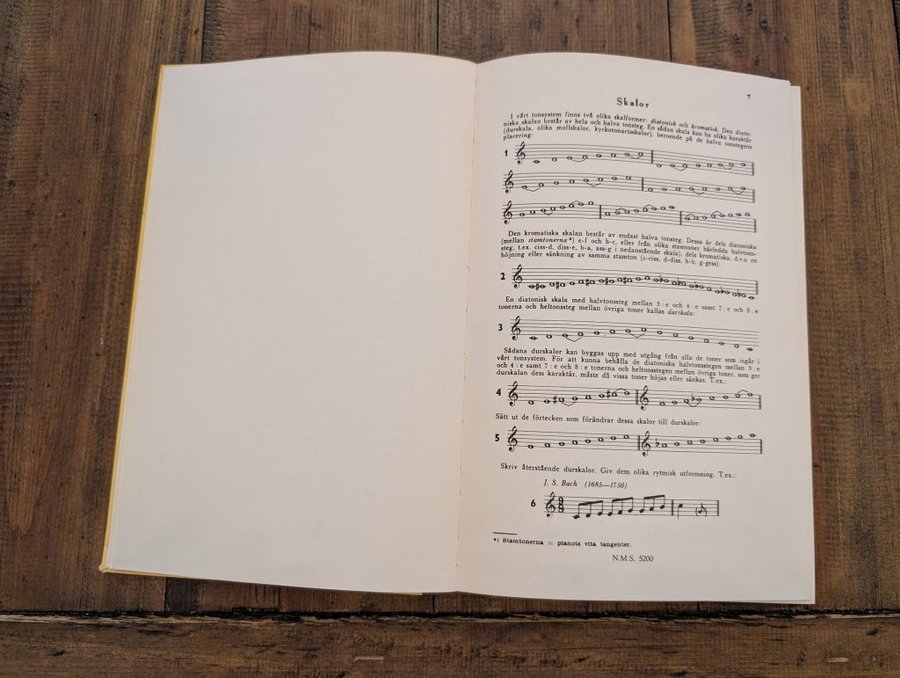 Skalor
7
I vårt tonsystem finns två olika skalformer: diatonisk och kromatisk. Den diato-
niska skalan består av hela och halva tonsteg. En sådan skala kan ha olika karaktär
(durskala, olika mollskalor, kyrkotonartsskalor), beroende på de halva tonstegens
placering:
1
Den kromatiska skalan består av endast halva tonsteg. Dessa är dels diatoniska
(mellan stamtonerna*) e-f och h-c, eller från olika stamtoner härledda halvtons-
steg, t.ex. ciss-d, diss-e, b-a, ass-g i nedanstående skala), dels kromatiska, d.v.s. en
höjning eller sänkning av samma stamton (c-ciss, d-diss, h-b, g-gess):
2
En diatonisk skala med halvtonssteg mellan 3:e och 4:e samt 7:e och 8:e
tonerna och heltonssteg mellan övriga toner kallas durskala:
3
Sådana durskalor kan byggas upp med utgång från alla de toner som ingår i
vårt tonsystem. För att kunna behålla de diatoniska halvtonsstegen mellan 3:e
och 4:e samt 7:e och 8:e tonerna och heltonsstegen mellan övriga toner, som ger
durskalan dess karaktär, måste då vissa toner höjas eller sänkas. T.ex.:
4
Sätt ut de förtecken som förändrar dessa skalor till durskalor:
5
Skriv återstående durskalor. Giv dem olika rytmisk utformning. T.ex.:
J. S. Bach (1685—1750)
6
*) Stamtonerna = pianots vita tangenter.
N.M.S. 5200